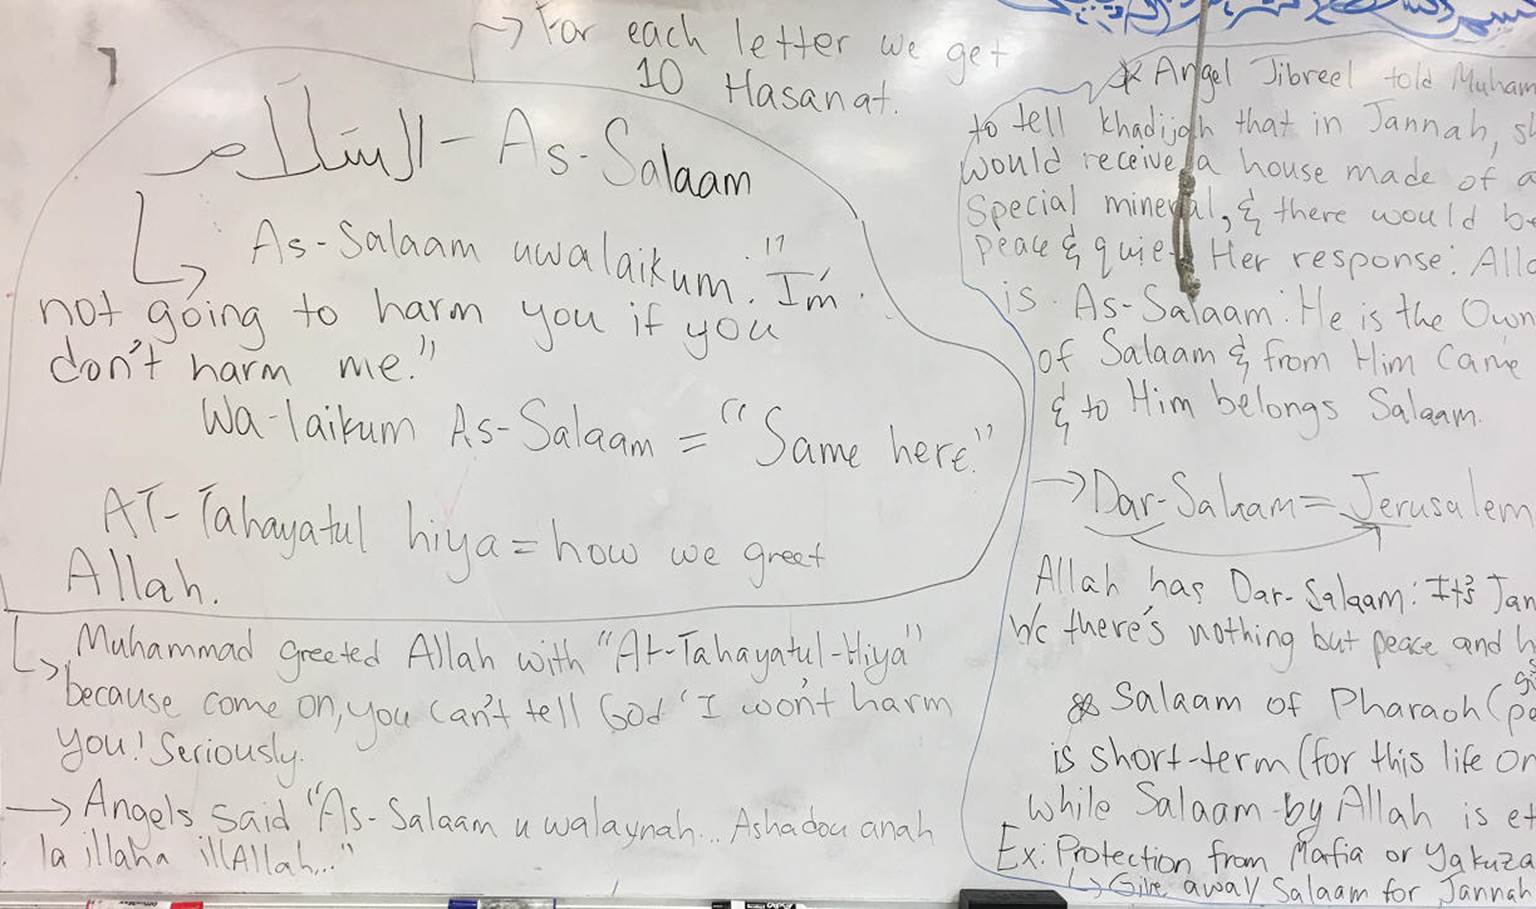 For each letter we get
10 Hasanat.
السَّلَام - As-Salaam
As-Salaam uwalaikum: "I'm
not going to harm you if you
don't harm me."
Wa-laikum As-Salaam = "Same here."
AT-Tahayatul hiya = how we greet
Allah.
Muhammad greeted Allah with "At-Tahayatul-Hiya"
because come on, you can't tell God 'I won't harm
you! Seriously.
→ Angels said "As-Salaam u walaynah... Ashadou anah
la illaha illAllah..."
* Angel Jibreel told Muham
to tell Khadijah that in Jannah, sh
would receive a house made of a
special mineral, & there would be
peace & quiet. Her response: Alla
is As-Salaam: He is the Own
of Salaam & from Him came
& to Him belongs Salaam.
→ Dar-Salaam = Jerusalem
Allah has Dar-Salaam: It's Jan
b/c there's nothing but peace and h
Salaam of Pharaoh (
is short-term (for this life on
while Salaam by Allah is et
Ex: Protection from Mafia or Yakuza
↳ Give away Salaam for Jannah